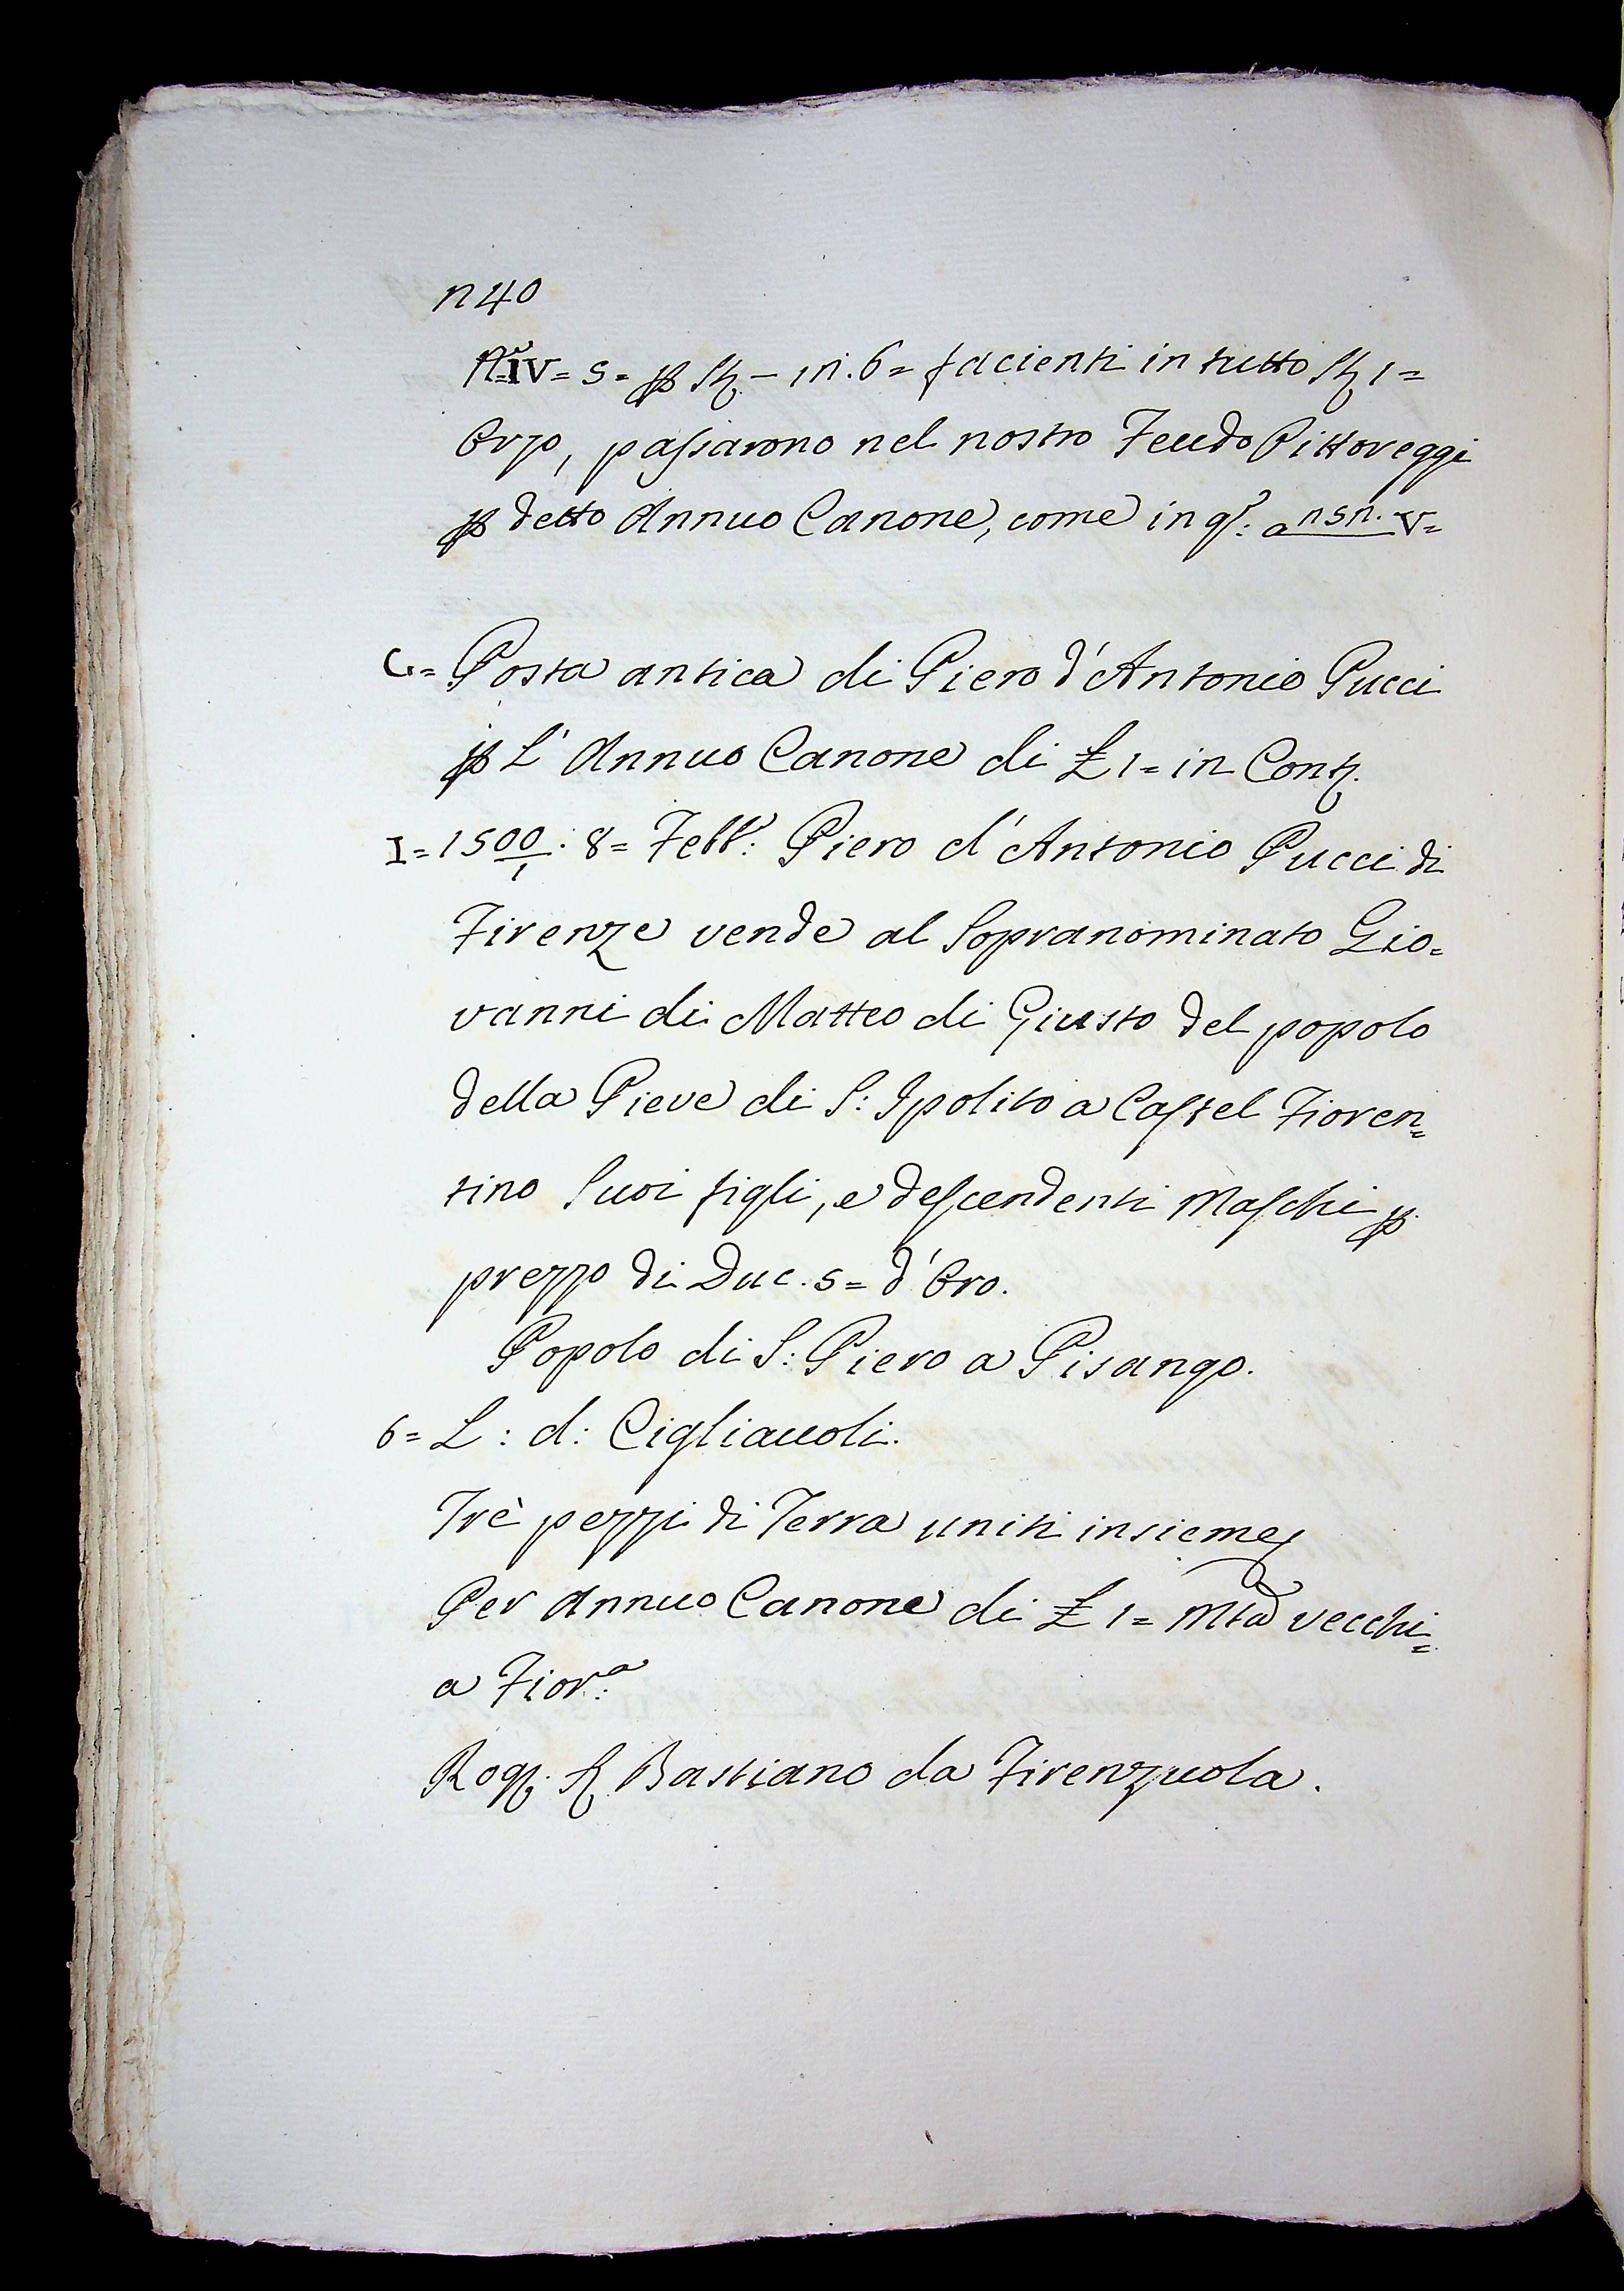 n 40
N.º IV = 5 = p St. – 1n. 6 = facienti in tutto St. 1 =
Orzo, passarono nel nostro Feudo Pittoreggi
p detto Annuo Canone, come in qº: a n5n. V =
G = Posta antica di Piero d'Antonio Pucci
p L' Annuo Canone di £ 1 = in Cont.
I = 1500/1. 8 = Febbº: Piero d'Antonio Pucci di
Firenze vende al Sopranominato Gio=
vanni di Matteo di Giusto del popolo
della Pieve di S: Ipolito a Castel Fioren=
tino Suoi figli, e descendenti Maschi p
prezzo di Duc. 5 = d'Oro.
Popolo di S: Piero a Pisango.
6 = L: d: Cigliavoli.
Trè pezzi di Terra uniti insieme
Per Annuo Canone di £ 1 = Mta vecchi=
a Fior:ª
Rog. S. Bastiano da Firenzuola.